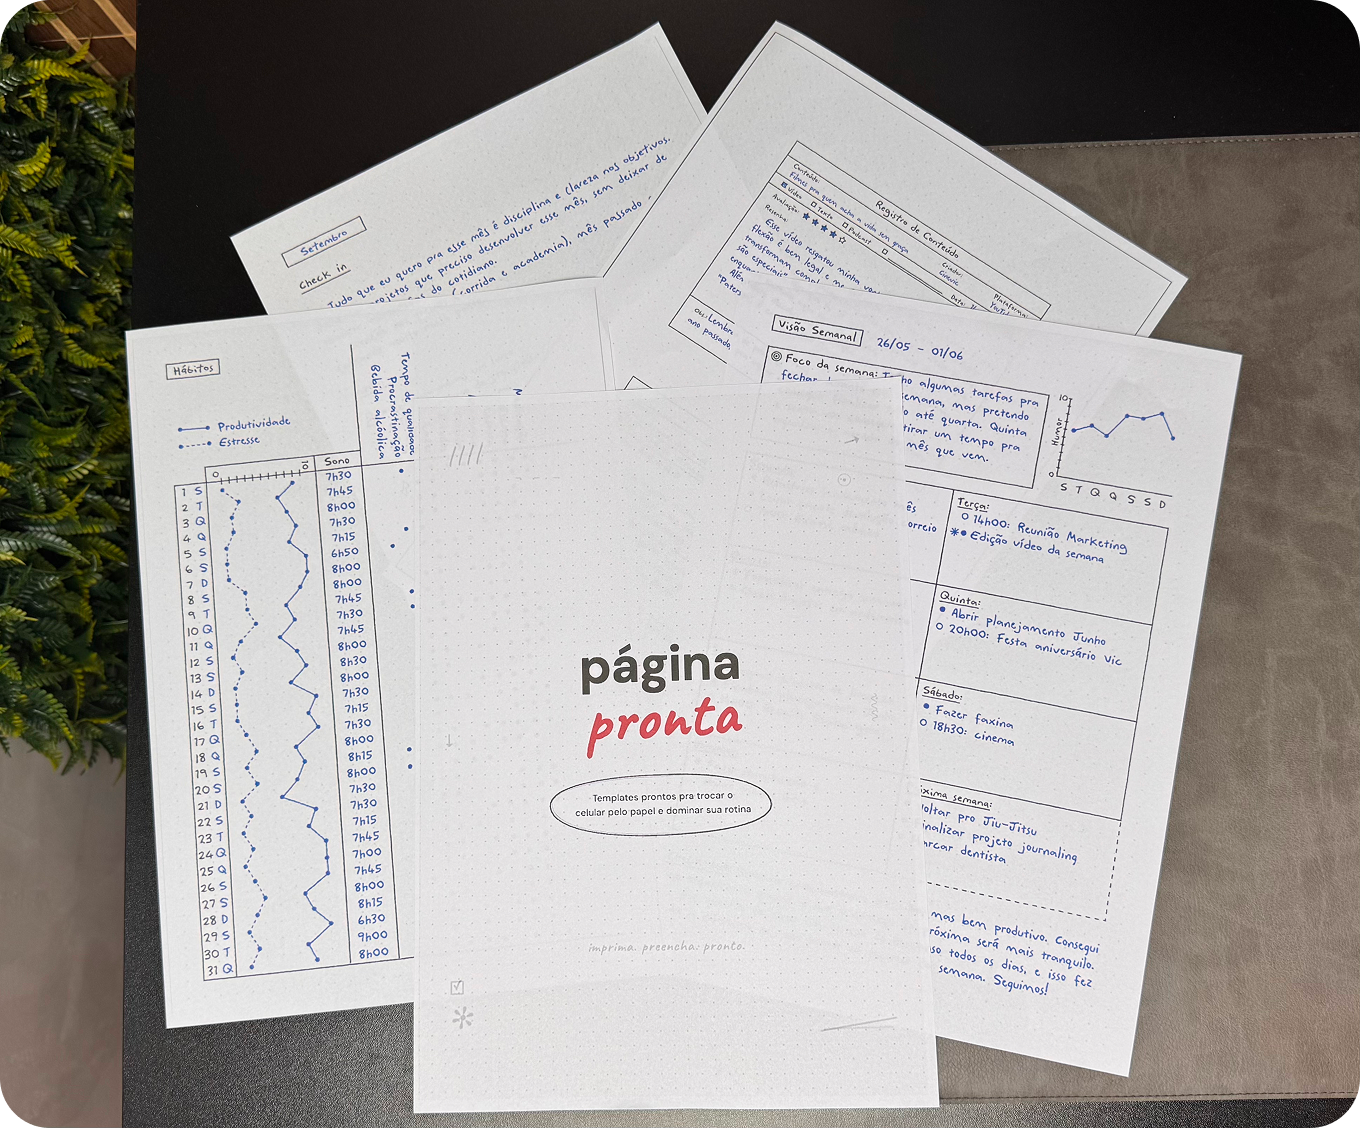 Setembro
Check in
Tudo que eu quero pra esse mês é disciplina e clareza nos objetivos.
projetos que preciso desenvolver esse mês, sem deixar de
do cotidiano.
(corrida e academia), mês passado
Registro de Conteúdo
Conteúdo:
Filmes pra quem acha a vida sem graça
Criador:
Plataforma:
Vídeo Texto Podcast
Avaliação: ★★★★☆
Data:
Resenha:
Esse vídeo resgatou minha
flexão é bem legal e
transformam
são especiais"
"D Além
ou: Lembra
ano passado
Hábitos
Produtividade
Estresse
Tempo de qualidade
Procrastinação
Bebida alcóolica
0 10 Sono
7h30
1 S 7h45
2 T 8h00
3 Q 7h30
4 Q 7h15
5 S 6h50
6 S 8h00
7 D 8h00
8 S 7h45
9 T 7h30
10 Q 7h45
11 Q 8h00
12 S 8h30
13 S 8h00
14 D 7h30
15 S 7h15
16 T 7h30
17 Q 8h00
18 Q 8h15
19 S 8h00
20 S 7h30
21 D 7h30
22 S 7h15
23 T 7h45
24 Q 7h00
25 Q 7h45
26 S 8h00
27 S 8h15
28 D 6h30
29 S 9h00
30 T 8h00
31 Q
Visão Semanal
26/05 - 01/06
Foco da semana: Tenho algumas tarefas pra
fechar
semana, mas pretendo
até quarta. Quinta
tirar um tempo pra
mês que vem.
Humor
10
0
S T Q Q S S D
Terça:
14h00: Reunião Marketing
Edição vídeo da semana
Quinta:
Abrir planejamento Junho
20h00: Festa aniversário Vic
Sábado:
Fazer faxina
18h30: cinema
semana:
pro Jiu-Jitsu
projeto journaling
dentista
mas bem produtivo. Consegui
será mais tranquilo.
todos os dias, e isso fez
semana. Seguimos!
página
pronta
Templates prontos pra trocar o
celular pelo papel e dominar sua rotina
imprima. preencha. pronto.